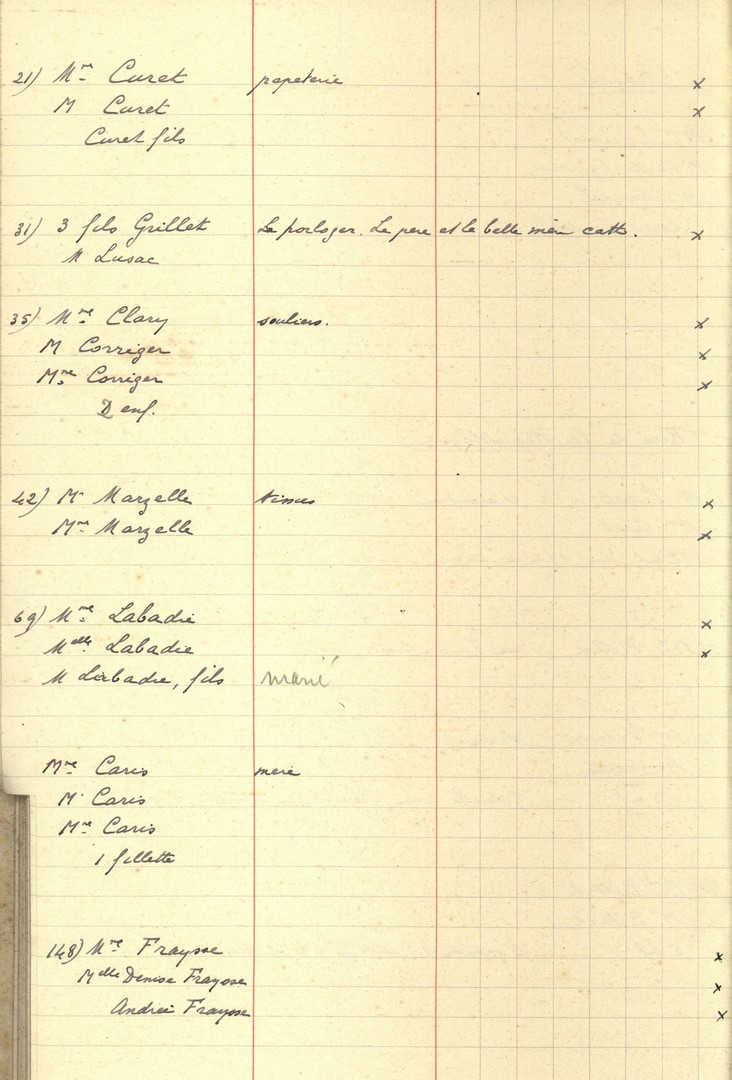 21) Mme Curet papeterie x
M Curet x
Curet fils
31) 3 fils Grillet La horloger. Le pere et la belle mère cath. x
M Lusac
35) Mme Clary souliers. x
M Corriger x
Mme Corriger x
2 enf.
42) Mr Marzelle tissus x
Mme Marzelle x
69) Mme Labadie x
Melle Labadie x
M Labadie, fils marié
Mme Caris mere
Mr Caris
Mme Caris
1 fillette
148) Mme Fraysse x
Melle Denise Fraysse x
Andrée Fraysse x